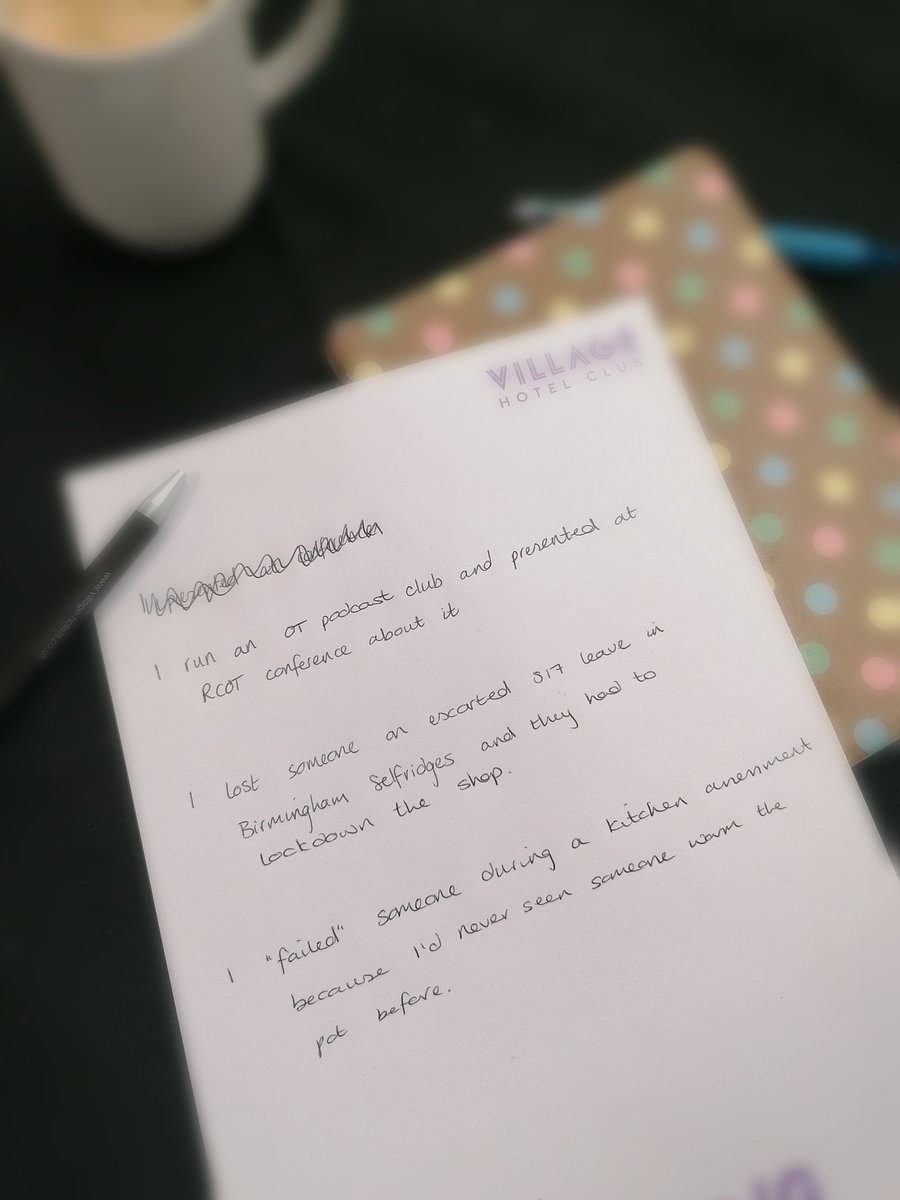 VILLAGE
HOTEL CLUB
www.village-hotels.co.uk
I run an OT podcast club and presented at
RCOT conference about it
I lost someone on escorted S17 leave in
Birmingham Selfridges and they had to
lockdown the shop.
I "failed" someone during a kitchen assessment
because I'd never seen someone warm the
pot before.